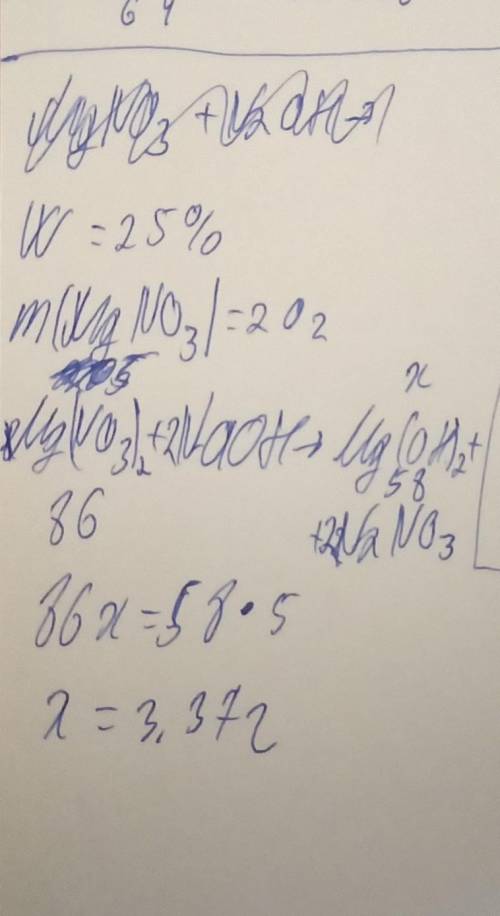 6 4
MgNO₃ + NaOH →
W = 25%
m(MgNO₃) = 20г
x
Mg(NO₃)₂ + 2NaOH → Mg(OH)₂ +
86 58
+ 2NaNO₃
86x = 58 · 5
x = 3,37г